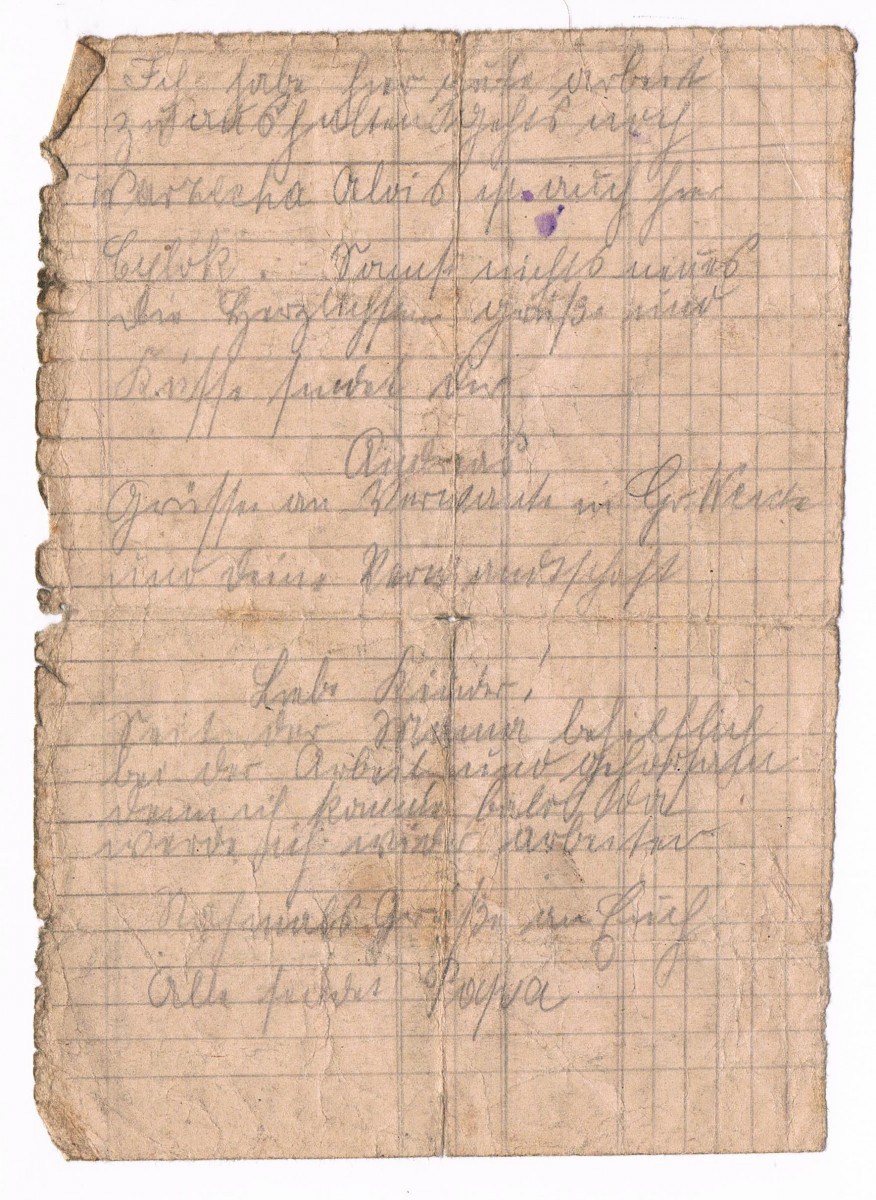 Ich habe hier gute arbeit
zu aushalten gehts noch
Warzecha Alois ist auch hier
Cylok. Sonst nichts neues
die Herzlichsten grüße und
Küsse sendet dir
Andreas
Grüsse an Verwante in Gr.
und deine Verwandtschaft
Liebe Kinder!
Seit der Mama behilflich
bei der Arbeit und gehorsam
denn ich komme bald da
werde ich wieder arbeiten
Nochmals Grüße an Euch
Alle sendet Papa